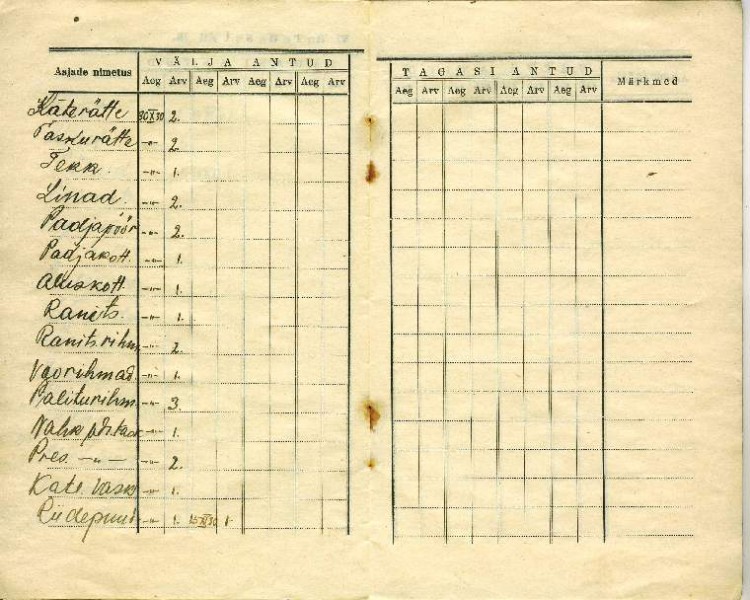 VÄLJA ANTUD
Asjade nimetus Aeg Arv Aeg Arv Aeg Arv Aeg Arv
TAGASI ANTUD
Aeg Arv Aeg Arv Aeg Arv Aeg Arv Märkmed
Käterätte 30 XI 30 2.
Taskurätte -"- 2
Tekk. -"- 1.
Linad. -"- 2.
Padjapöör -"- 2.
Padjakott. -"- 1.
Aluskott -"- 1.
Ranits. -"- 1.
Ranitsrihm -"- 2.
Voorihmad. -"- 1.
-"- 3.
Nahk -"- 1.
Pres. -"- -"- 2.
-"- 1.
Riidepuu -"- 1. 1.